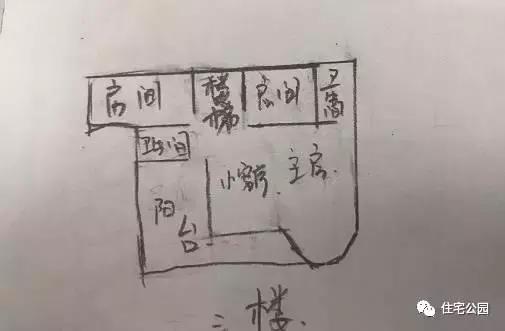 房间
楼梯
房间
卫间
小客厅
主房
阳台
二楼
住宅公园